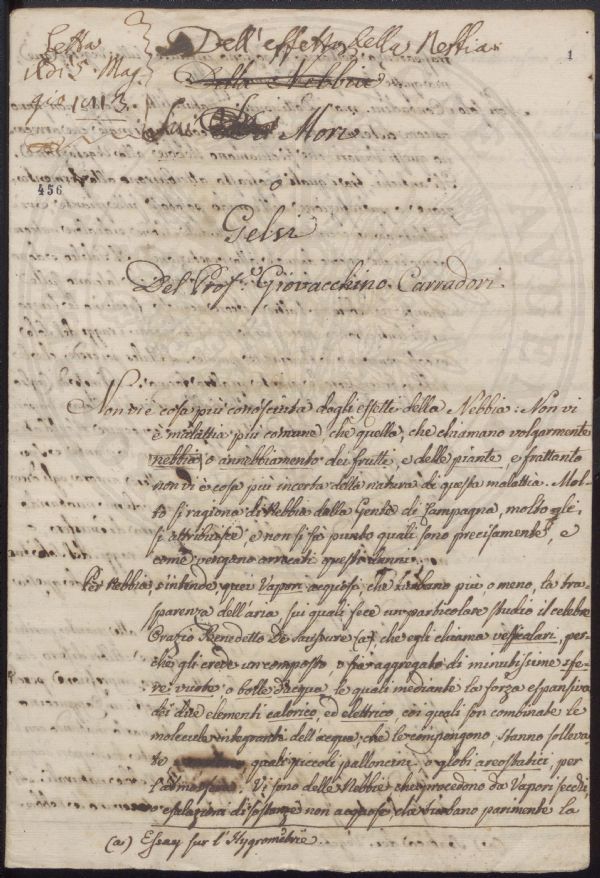 Letta
il dì 5. Mag
gio 1813.
456
1
Dell'effetto della Nebbia
Della Nebbia
sui Mori
o
Gelsi
Del Prof.e Giovacchino Carradori.
Non vi è cosa più conosciuta dagli effetti della Nebbia: Non vi
è malattia più comune, che quella, che chiamano volgarmente
nebbia, o annebbiamento dei frutti, e delle piante, e frattanto
non vi è cosa più incerta della natura di questa malattia. Mol-
to si ragiona di Nebbia dalla Gente di Campagna, molto gli
si attribuisce e non si sà punto quali sono precisamente, e
come vengono arrecati questi danni.
Per Nebbia, s'intende, quei Vapori acquosi, che turbano più, o meno, la tra-
sparenza dell'aria sui quali fece un particolare studio il celebre
Orazio Benedetto De Saussure (a), che egli chiama vessicolari, per-
chè gli crede un composto, o aggregato di minutissime sfe-
re vuote, o bolle d'acqua, le quali mediante la forza espansiva
dei due elementi calorico, ed elettrico, coi quali son combinate le
molecule integranti dell'acqua, che le compongono, stanno solleva-
te quali piccoli palloncini, o globi areostatici per
l'atmosfera. Vi sono delle Nebbie che procedono da Vapori secchi,
o esalazioni di sostanze non acquose che turbano parimente la
(a) Essay sur l'Hygrometrie.